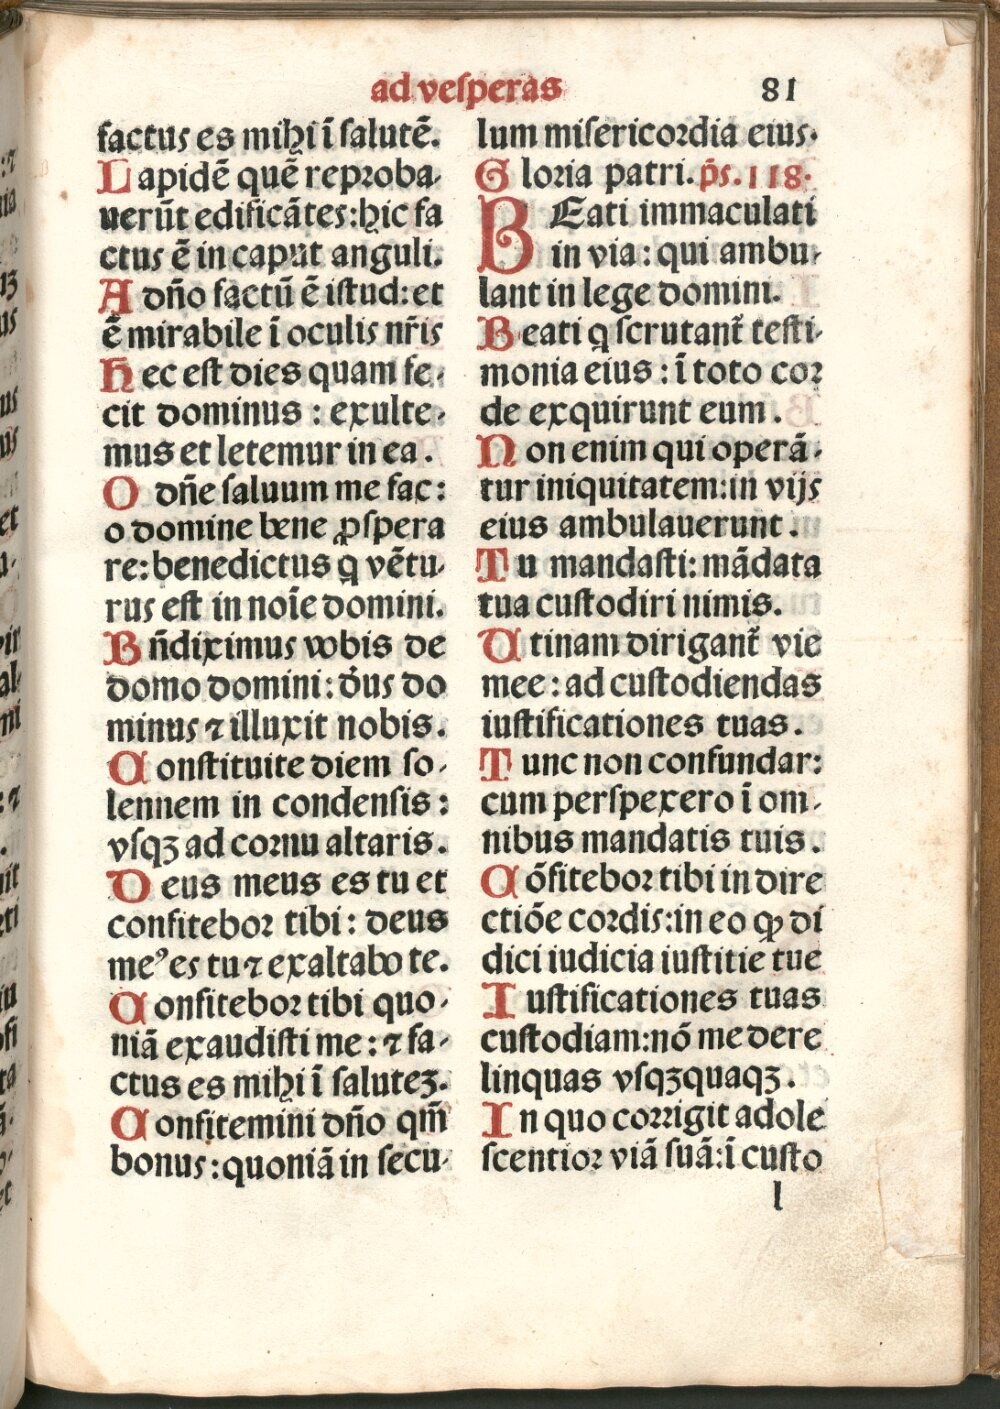 ad vesperas 81
factus es mihi ī salutē.
Lapidē quē reproba-
uerūt edificātes: hic fa
ctus ē in caput anguli.
A dño factū ē istud: et
ē mirabile ī oculis nr̄is
Hec est dies quam fe-
cit dominus : exulte-
mus et letemur in ea .
O dñe saluum me fac:
o domine bene ꝓspera
re: benedictus q̄ vētu-
rus est in noīe domini.
Bñdiximus vobis de
domo domini: de᷒us do
minus ⁊ illuxit nobis .
Constituite diem so-
lennem in condensis :
vsqꝫ ad cornu altaris .
Deus meus es tu et
confitebor tibi : deus
meꝰ es tu ⁊ exaltabo te.
Confitebor tibi quo-
niā exaudisti me : ⁊ fa-
ctus es mihi ī saluteꝫ.
Confitemini dño qm̄
bonus : quoniā in secu-
lum misericordia eius.
Gloria patri. p̄s. 118.
BEati immaculati
in via : qui ambu-
lant in lege domini.
Beati q scrutant᷑ testi-
monia eius : ī toto cor
de exquirunt eum .
Non enim qui operā-
tur iniquitatem: in vijs
eius ambulauerunt .
Tu mandasti: mādata
tua custodiri nimis.
Utinam dirigant᷑ vie
mee : ad custodiendas
iustificationes tuas .
Tunc non confundar:
cum perspexero ī om-
nibus mandatis tuis .
Cōfitebor tibi in dire
ctiōe cordis: in eo ꝙ di
dici iudicia iustitie tue
Iustificationes tuas
custodiam: nō me dere
linquas vsqꝫquaqꝫ .
In quo corrigit adole
scentior viā suā: ī custo
l